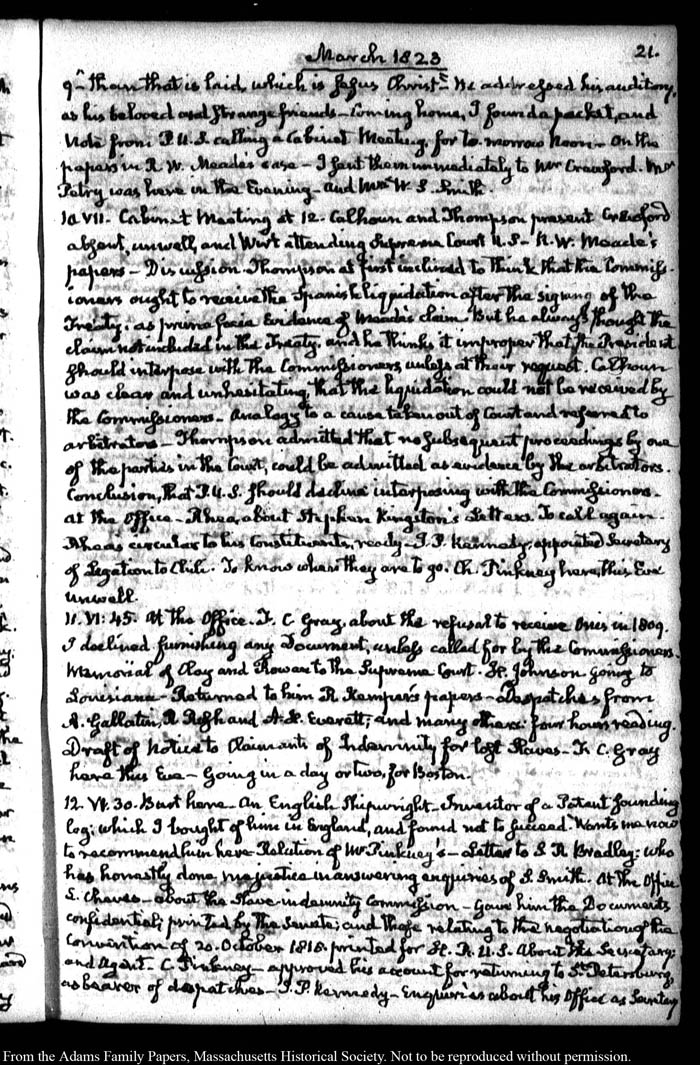 March 1823
21.
than that is laid, which is Jesus Christ. He addressed his auditory,
as his beloved and strange friends—Coming home, I found a packet, and
Note from P.U.S. calling a Cabinet Meeting, for to-morrow Noon—On the
papers in R. W. Meade's case—I sent them immediately to Mr Crawford. Mr
Petry was here in the Evening—and Mrs W. S. Smith.
10. VII. Cabinet Meeting at 12. Calhoun and Thompson present Crawford
absent, unwell, and Wirt attending Supreme Court U.S.—R. W. Meade's
papers—Discussion. Thompson at first inclined to think that the Commiss-
ioners ought to receive the Spanish liquidation after the signing of the
Treaty, as prima facia Evidence of Meade's claim. But he always thought the
claim not included in the Treaty, and he thinks it improper that the President
should interpose with the Commissioners, unless at their request. Calhoun
was clear and unhesitating, that the liquidation could not be received by
the Commissioners—Analogy to a cause taken out of Court and referred to
arbitrators—Thompson admitted that no subsequent proceedings by one
of the parties in the Court, could be admitted as evidence by the arbitrators.
Conclusion, that P.U.S. should decline interposing with the Commissioners.
At the Office—Rhea, about Stephen Kingston's Letters. To call again.
Rhea's circular to his Constituents, ready—J. P. Kennedy, appointed Secretary
of Legation to Chili. To know when they are to go. Ch. Pinkney here, this Eve
unwell.
11. VI: 45. At the Office. F. C. Gray, about the refusal to receive Onis in 1809.
I declined furnishing any Document, unless called for by the Commissioners.
Memorial of Clay and Rowan to the Supreme Court. H. Johnson going to
Louisiana—Returned to him R. Kemper's papers—Despatches from
A. Gallatin, R Rush and A. H. Everett; and many others: four hours reading.
Draft of Notice to Claimants of Indemnity for lost Slaves—F. C. Gray
here this Eve—Going in a day or two, for Boston.
12. VI. 30. Burt here—An English Shipwright—Inventor of a Patent sounding
log; which I bought of him in England, and found not to succeed. Wants me now
to recommend him here Relation of Mr Pinkney's—Letter to S R Bradley: who
has honestly done me justice in answering enquiries of J. Smith. At the Office
L. Cheves—about the Slave-indemnity Commission—Gave him the Documents
confidential; printed by the Senate; and those relating to the negotiation of the
Convention of 20. October 1818. printed for H. R. U.S. About the Secretary;
and Agent—C. Pinkney—approved his account for returning to St. Petersburg,
as bearer of despatches—J. P. Kennedy—Enquiries about his Office as Secretary
From the Adams Family Papers, Massachusetts Historical Society. Not to be reproduced without permission.